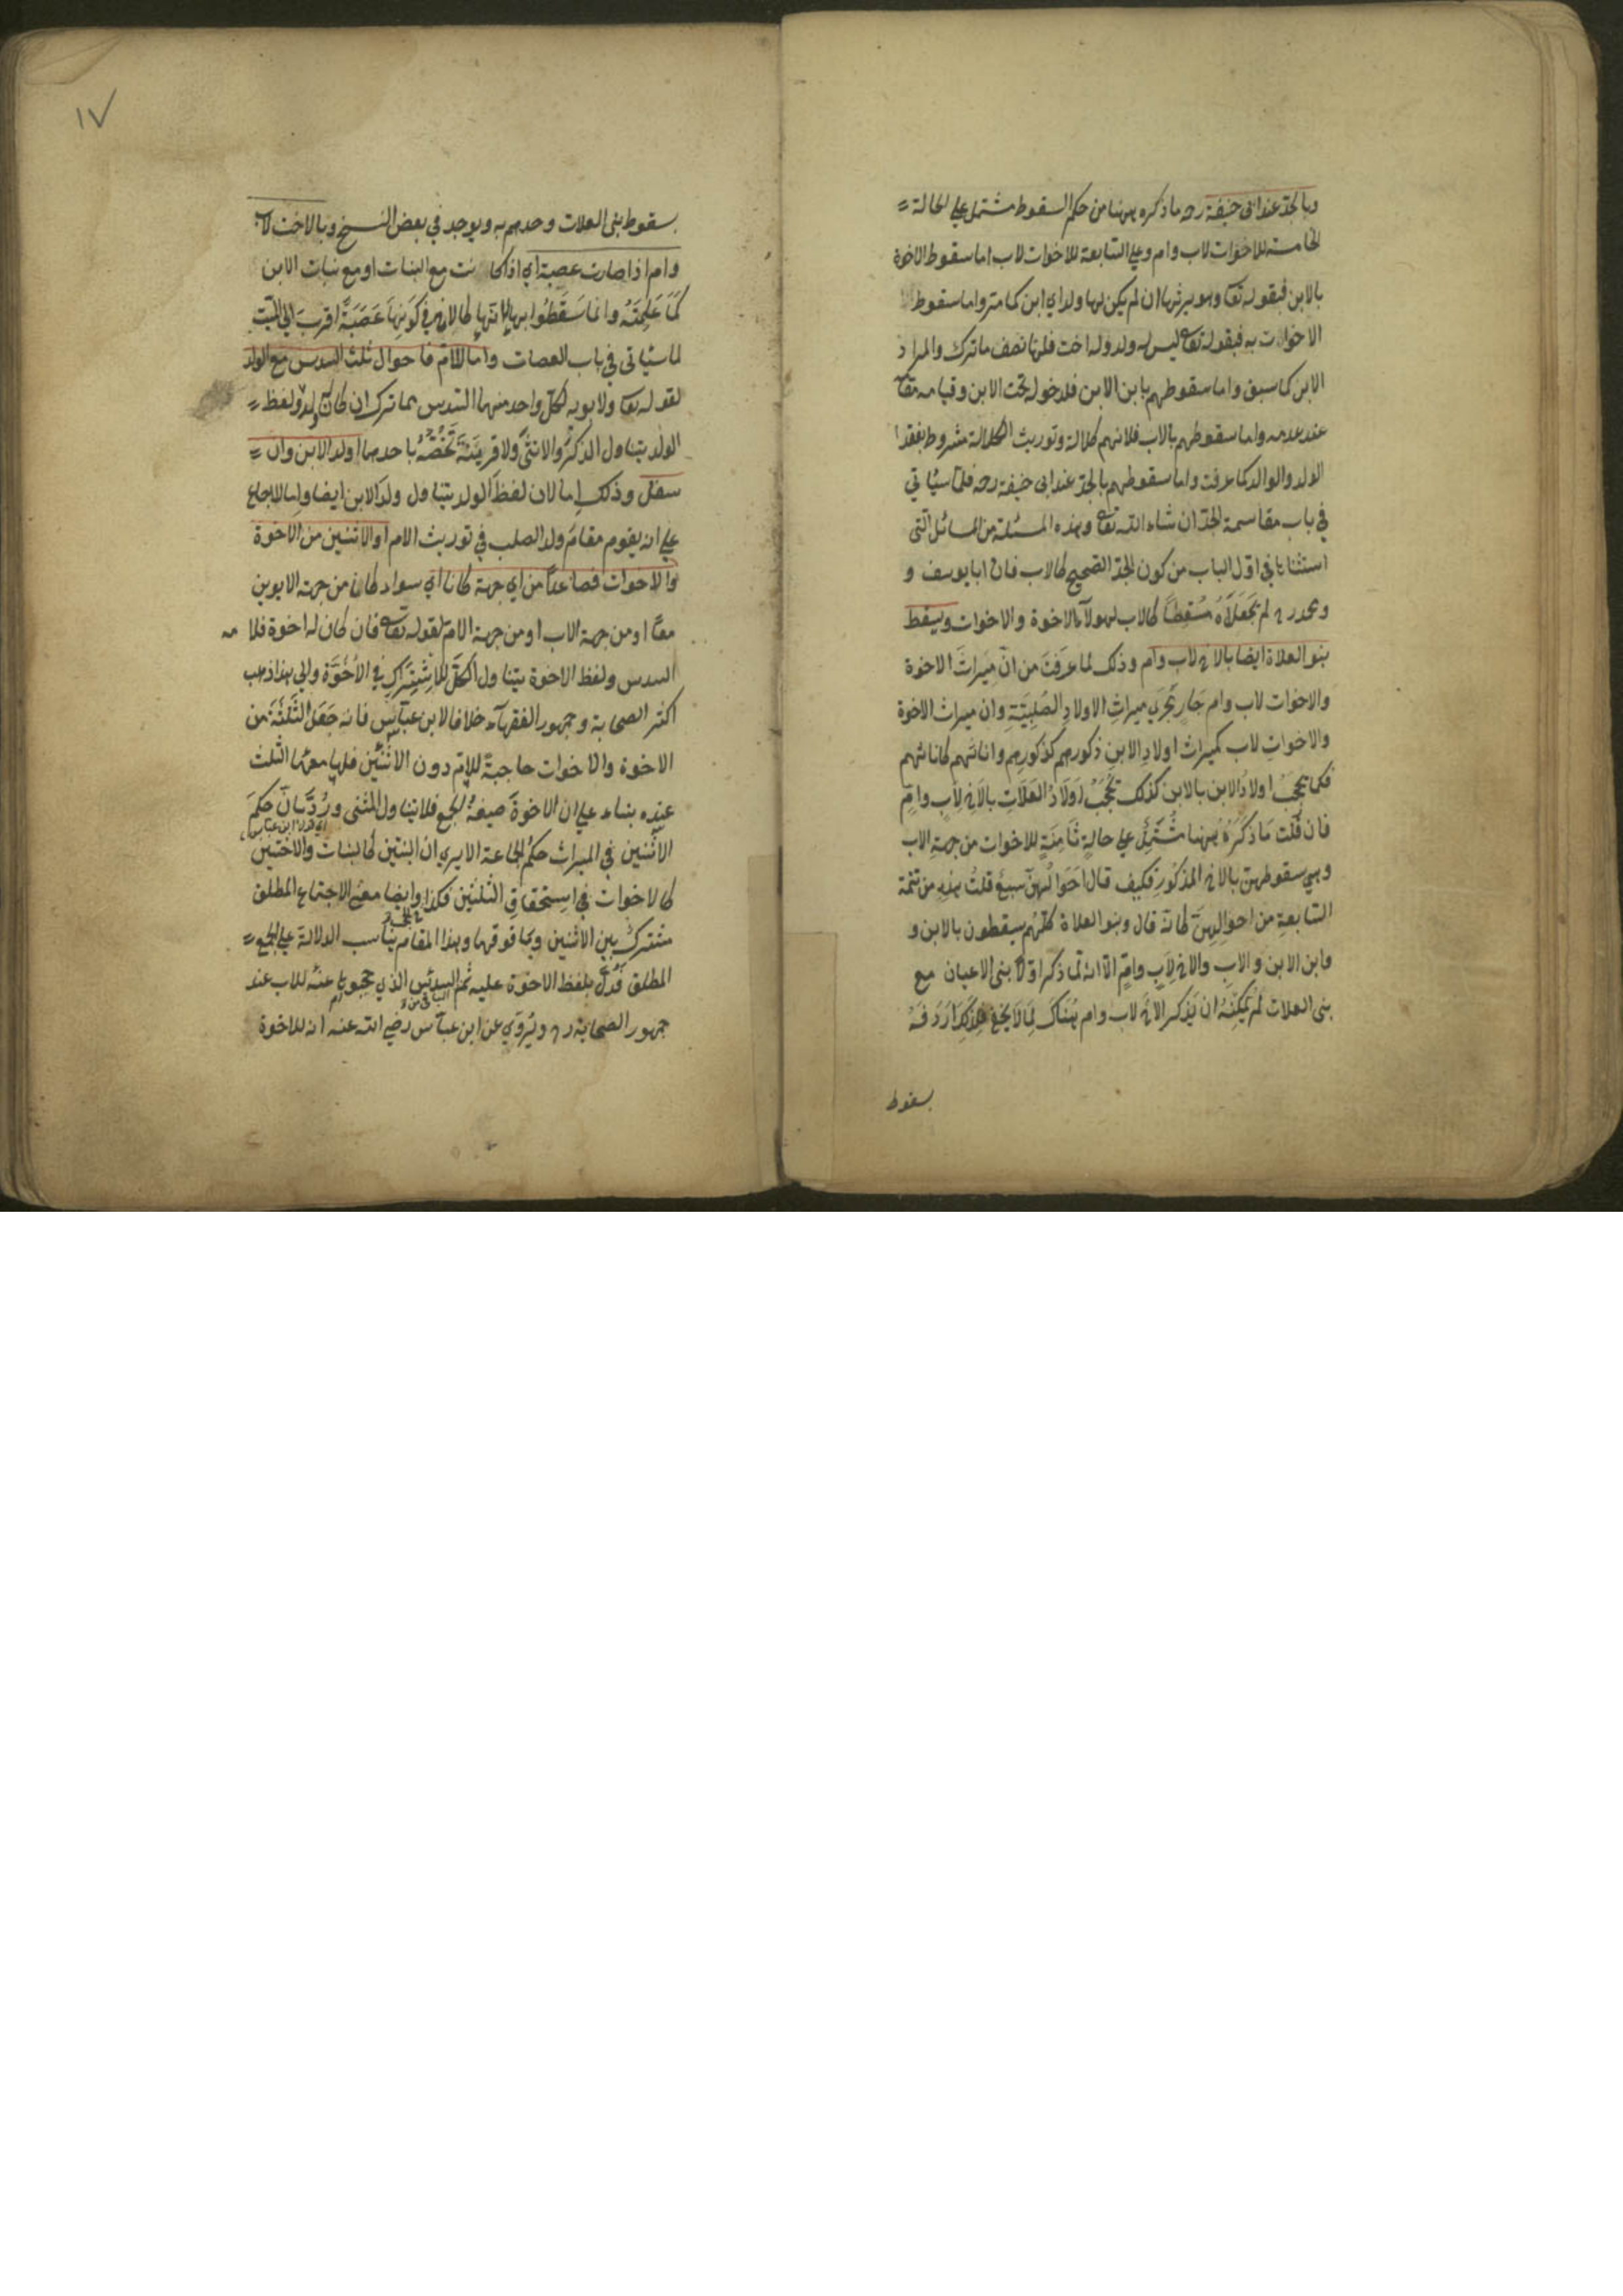 وبالجد عند ابى حنيفة رحه ما ذكره ههنا من حكم السقوط مشتمل علي الحالة
الخامسة للاخوات لاب وام وعلي السابعة للاخوات لاب اما سقوط الاخوة
بالابن فبقوله تعا وهو يرثها ان لم يكن لها ولد اي ابن كما مر واما سقوط
الاخوات به فبقوله تعا ليس له ولد وله اخت فلها نصف ما ترك والمراد
الابن كما سبق واما سقوطهم بابن الابن فلدخوله تحت الابن وقيامه مقامه
عند عدمه واما سقوطهم بالاب فلانهم كلالة وتوريث الكلالة مشروط بفقد
الولد والوالد كما عرفت واما سقوطهم بالجد عند ابى حنيفة رحه فلما سيأتي
في باب مقاسمة الجد ان شاء الله تعا وهذه المسئلة من المسائل التى
استثناها في اول الباب من كون الجد الصحيح كالاب فان ابا يوسف و
ومحمد رح لم يَجْعَلَاهُ مُسْقِطًا كالاب لهولآء الاخوة والاخوات ويسقط
بنو العلاة ايضا بالاخ لاب وام وذلك لما عرفتَ من انّ ميراثَ الاخوة
والاخوات لاب وام جار مَجْرَي ميراثِ الاولادِ الصُلبِيَّةِ وان ميراث الاخوة
والاخواتِ لاب كميراث اولادِ الابنِ ذكورهم كذكورِهم واناثهم كاناثهم
فكما يحجبُ اولادُ الابن بالابن كذلك تحجبُ اَولادُ العَلَاتِ بالاَخِ لاَبٍ وامٍّ
فان قُلتَ مَا ذكَرَهُ ههنا مُشْتَمِلٌ علي حالةٍ ثَامِنَةٍ للاخوات من جهةِ الاب
وهي سقوطهن بالاخ المذكورِ فكيف قال اَحْوَالُهنّ سبعٌ قلتُ هذهِ من تتمة
السّابعةِ من احوالِهِنَّ كانّهُ قال وبنو العلاة كلُّهُم يسقطون بالابن و
وابن الابن والابِ والاخِ لاَبٍ وامٍّ الّا انه لما ذكر اوّلًا بنى الاعيان مع
بنى العلات لم يُمكِنْهُ ان يَذكر الاَخَ لاب وام هُنَاكَ لِمَا لاَ يخفي فلذلكَ اَرْدَفَهُ
سقوط
١٧
سقوط بنى العلات وحدهم به ويوجد في بعض النسخ وبالاخت لاب
وام اذا صارت عصبة اي اذا كانت مع البنات او مع بنات الابن
كَمَا عَلِمْتَهُ وانما سَقَطُوا بها لانّها كالاخ في كَوْنِهَا عَصَبَةً اقربَ الي الميّت
لما سيأتى في باب العصبات واما للام فاحوال ثلث السدس مع الولد
لقوله تعا ولابويه لكلّ واحد منهما السّدس مما ترك ان كان له ولد ولفظ
الولد يتناول الذكرَ والانثَى ولا قرينَةَ تَخُصُّهُ باحدهما او ولد الابن وان
سفل وذلك اما لان لفظَ الولد يتناول ولدَ الابن ايضا واما للاجماع
علي انه يقوم مقامَ ولد الصلب في توريث الام او الاثنين من الاخوة
والاخوات فصاعدًا من اي جهة كانا اي سواء كان من جهة الابوين
معًا او من جهة الاب او من جهة الام لقوله تعا فان كان له اخوة فلامه
السدس ولفظ الاخوة يتناول الكلَّ للاِشْتِرَاكِ في الاُخُوَّة والي هذا ذهب
اكثر الصحابة وجمهور الفقهآء خلافا لابن عبّاس فانه جَعَلَ الثلثةَ من
الاخوة والاخوات حاجبةً للام دون الاثنَيْنِ فلها معهما الثلث
عنده بناء علي ان الاخوةَ صيغةُ الجمع فلا يتناول المثنى ورُدَّ بانّ حكمَ
اي قول ابن عباس
الاثنين في الميراث حكم الجماعة الا يري ان البنتين كالبنات والاختين
كالاخوات في استحقاق الثلثين فكذا وايضا معنى الاجتماع المطلق
مشترك بين الاثنين وما فوقهما وهذا المقام يناسب الدلالة علي الجمع
المطلق فدلّ بلفظ الاخوة عليه ثم السدس الذي حجبوها عنه للاب عند
جمهور الصحابة رح ويُروَي عن ابن عبّاس رضي الله عنه انه للاخوة